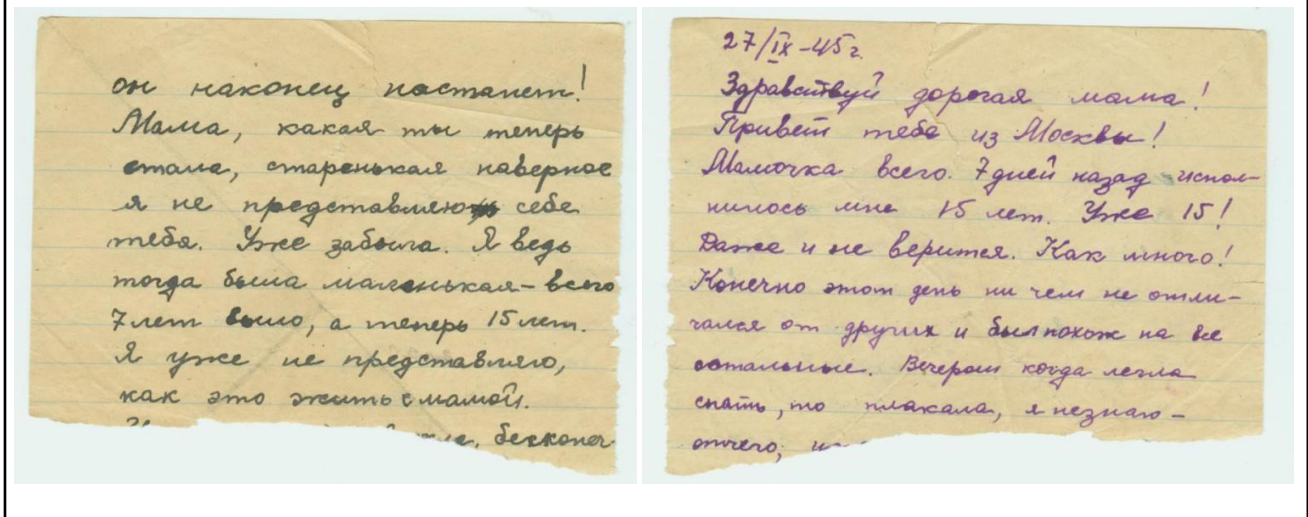 он наконец настанет!
Мама, какая ты теперь
стала, старенькая наверное
я не представляю себе
тебя. Уже забыла. Я ведь
тогда была маленькая – всего
7 лет было, а теперь 15 лет.
Я уже не представляю,
как это жить с мамой.
бесконеч
27/IX-45 г.
Здравствуй дорогая мама!
Привет тебе из Москвы!
Мамочка всего. 7 дней назад испол-
нилось мне 15 лет. Уже 15!
Даже и не верится. Как много!
Конечно этот день ни чем не отли-
чался от других и был похож на все
остальные. Вечером когда легла
спать, то плакала, я незнаю –
отчего,